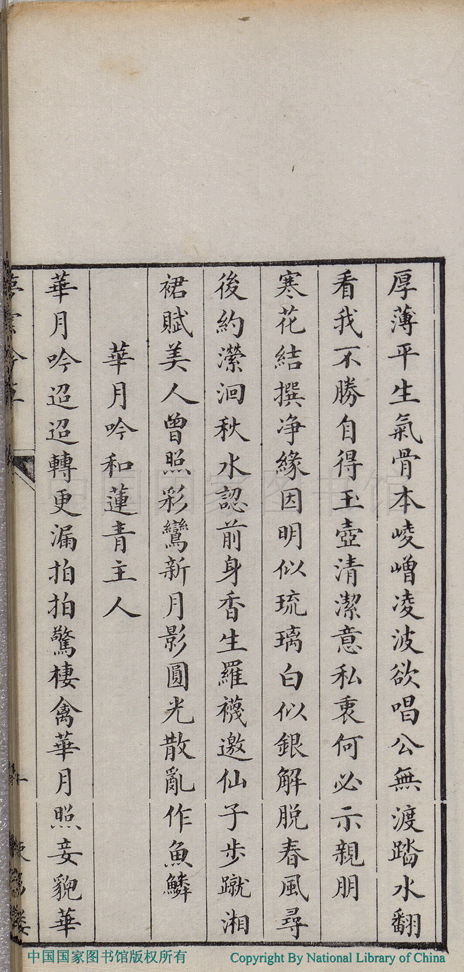 厚薄平生氣骨本崚嶒凌波欲唱公無渡踏水翻
看我不勝自得玉壺清潔意私衷何必示親朋
寒花結撰净緣因明似琉璃白似銀解脱春風尋
後約瀠洄秋水認前身香生羅襪邀仙子步蹴湘
裙賦美人曾照彩鸞新月影圓光散亂作魚鱗
華月吟和蓮青主人
華月吟迢迢轉更漏拍拍驚棲禽華月照妾貌華
中国国家图书馆版权所有
Copyright By National Library of China